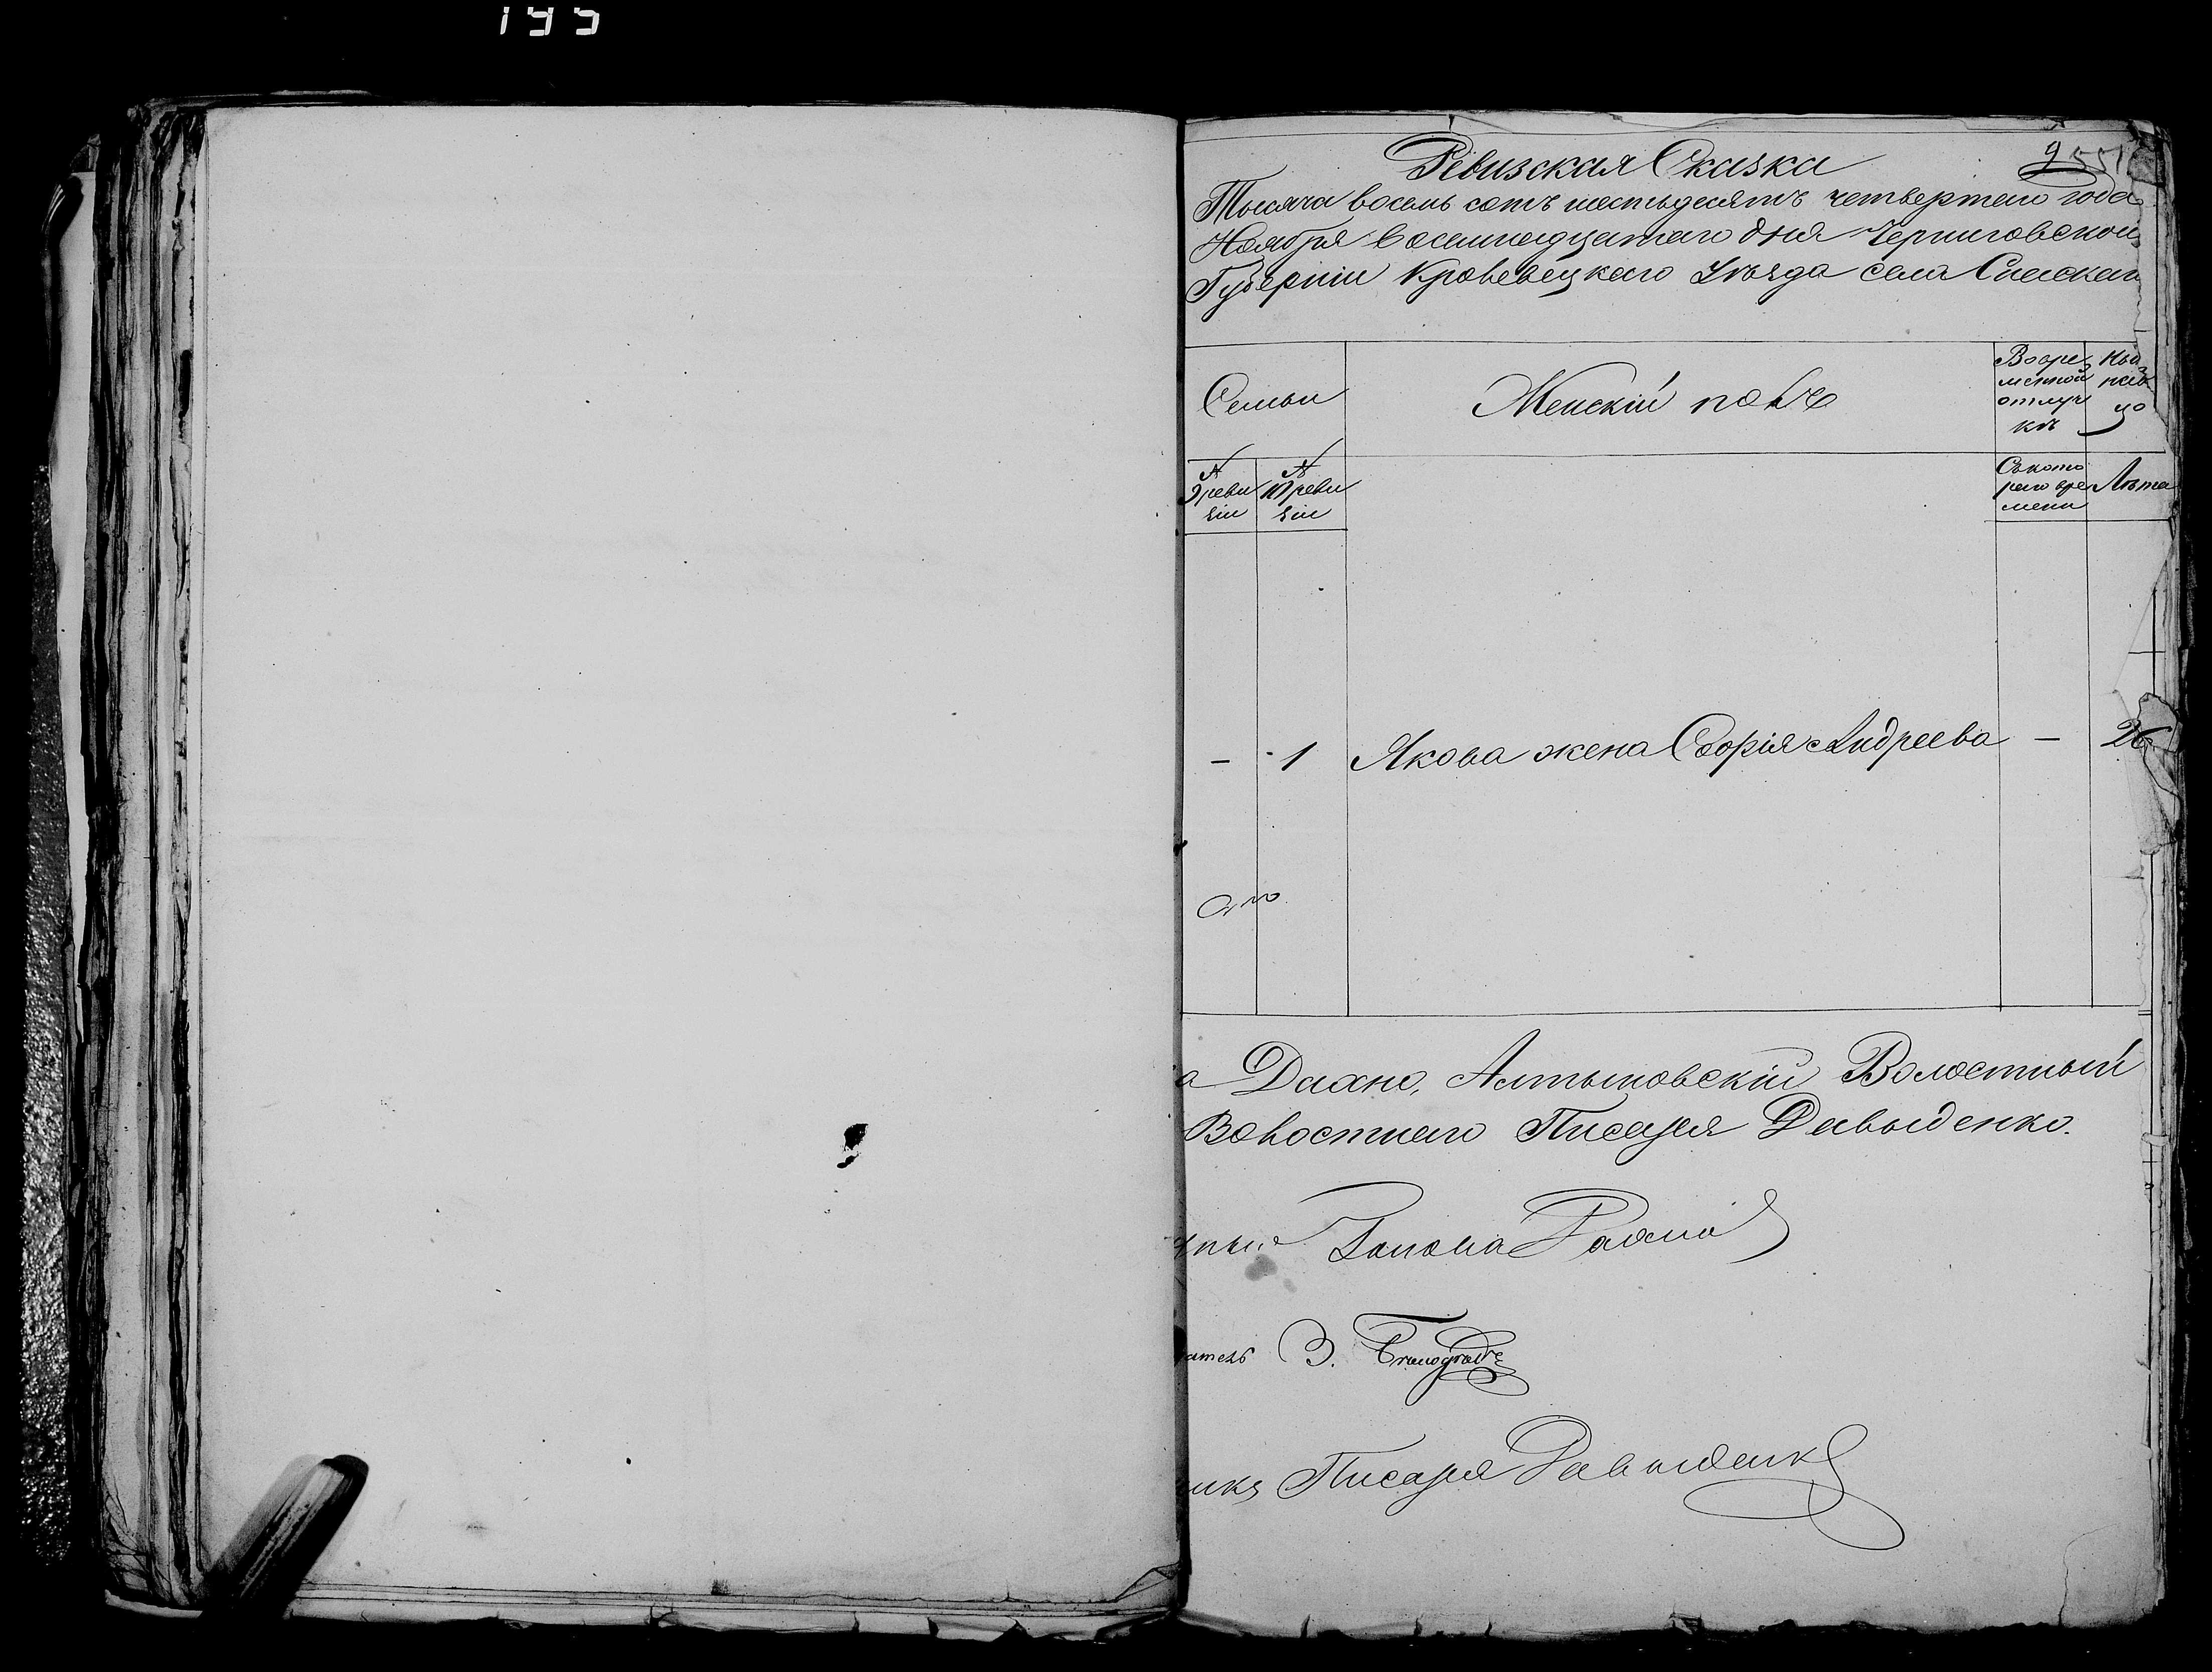 195
Ревизская Сказка
9 551
Тысяча восемь сотъ шестьдесятъ четвертаго года
Ноября восемнадцатаго дня Черниговской
Губерніи Кролевецкаго Уѣзда села Спаскаго
Семьи
Женскій полъ
Во вре
менной
отлуч
кѣ
№
9 реви
зіи
№
10 реви
зіи
Съ кото
раго вре
мени
Лѣта
— 1 Якова жена Софія Андреева — 26
а Дахно, Алтыновскій Волостный
Волостнаго Писаря Давыденко.
Дахно
атель З.
Писаря Давыденко